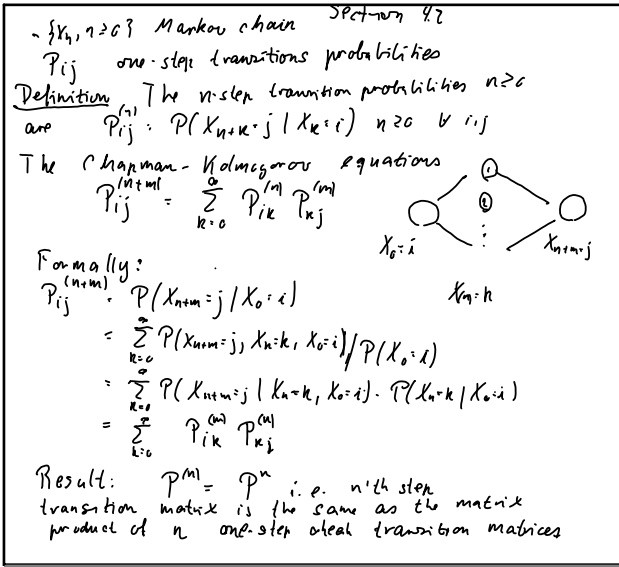 Section 4.2
- {Xn, n≥0} Markov chain
Pij one-step transitions probabilities
Definition The n-step transition probabilities n≥0
are Pij^(n) = P(Xn+k = j | Xk = i) n≥0 ∀ i,j
The Chapman-Kolmogorov equations
Pij^(n+m) = ∑_{k=0}^∞ Pik^(n) Pkj^(m)
1
2
⋮
X0 = i
Xn+m = j
Xn = k
Formally:
Pij^(n+m) = P(Xn+m = j | X0 = i)
= ∑_{k=0}^∞ P(Xn+m = j, Xn = k, X0 = i) / P(X0 = i)
= ∑_{k=0}^∞ P(Xn+m = j | Xn = k, X0 = i) · P(Xn = k | X0 = i)
= ∑_{k=0}^∞ Pik^(m) Pkj^(n)
Result: P^(n) = P^n i.e. n'th step
transition matrix is the same as the matrix
product of n one-step transition matrices